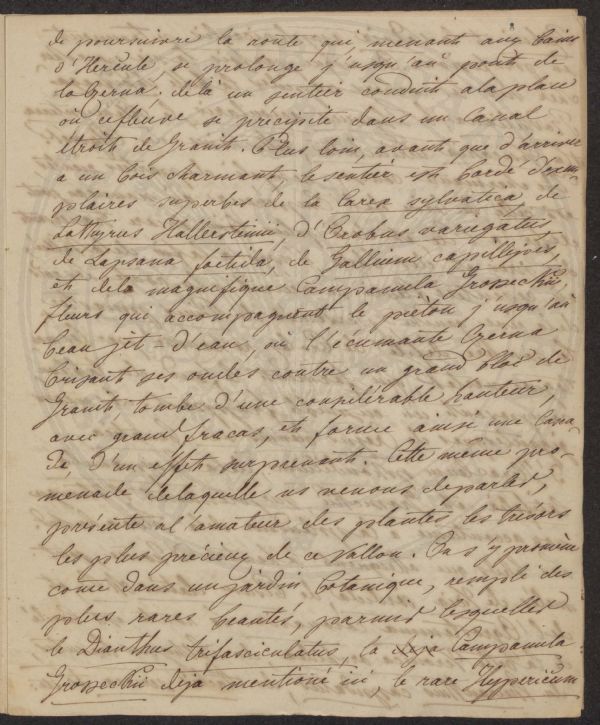 de poursuivre la route qui, menant aux bains
d'Hercule, se prolonge j'usqu'au pont de
la Czerna. delà un sentier conduit a la place
où ce fleuve se précipite dans un Canal
étroit de Granit. Plus loin, avant que d'arriver
a un bois charmant, le sentier est bordé d'exem-
plaires superbes de la Carex sylvatica, de
Lathyrus Hallersteinii, d'Orobus variegatus,
de Lapsana foetida, de Gallium capillipes,
et dela magnefique Campanula Grossekii,
fleurs qui accompagnent le pieton j'usqu'au
beau jet-d'eau, où l'écumante Czerna
brisant ses ondes contre un grand bloc de
Granit, tombe d'une considérable hauteur,
avec grand fracas, et forme ainsi une Casca-
de, d'un effet surprenant. Cette même pro-
menade delaquelle ns venons deparler,
présente a l'amateur des plantes les trésors
les plus précieux de ce vallon. On s'y promène
come dans un jardin botanique, remplé des
plus rares beautés, parmis lesquelles
le Dianthus trifasciculatus, la deja Campanula
Grossekii deja mentioné ici, le rare Hypericum